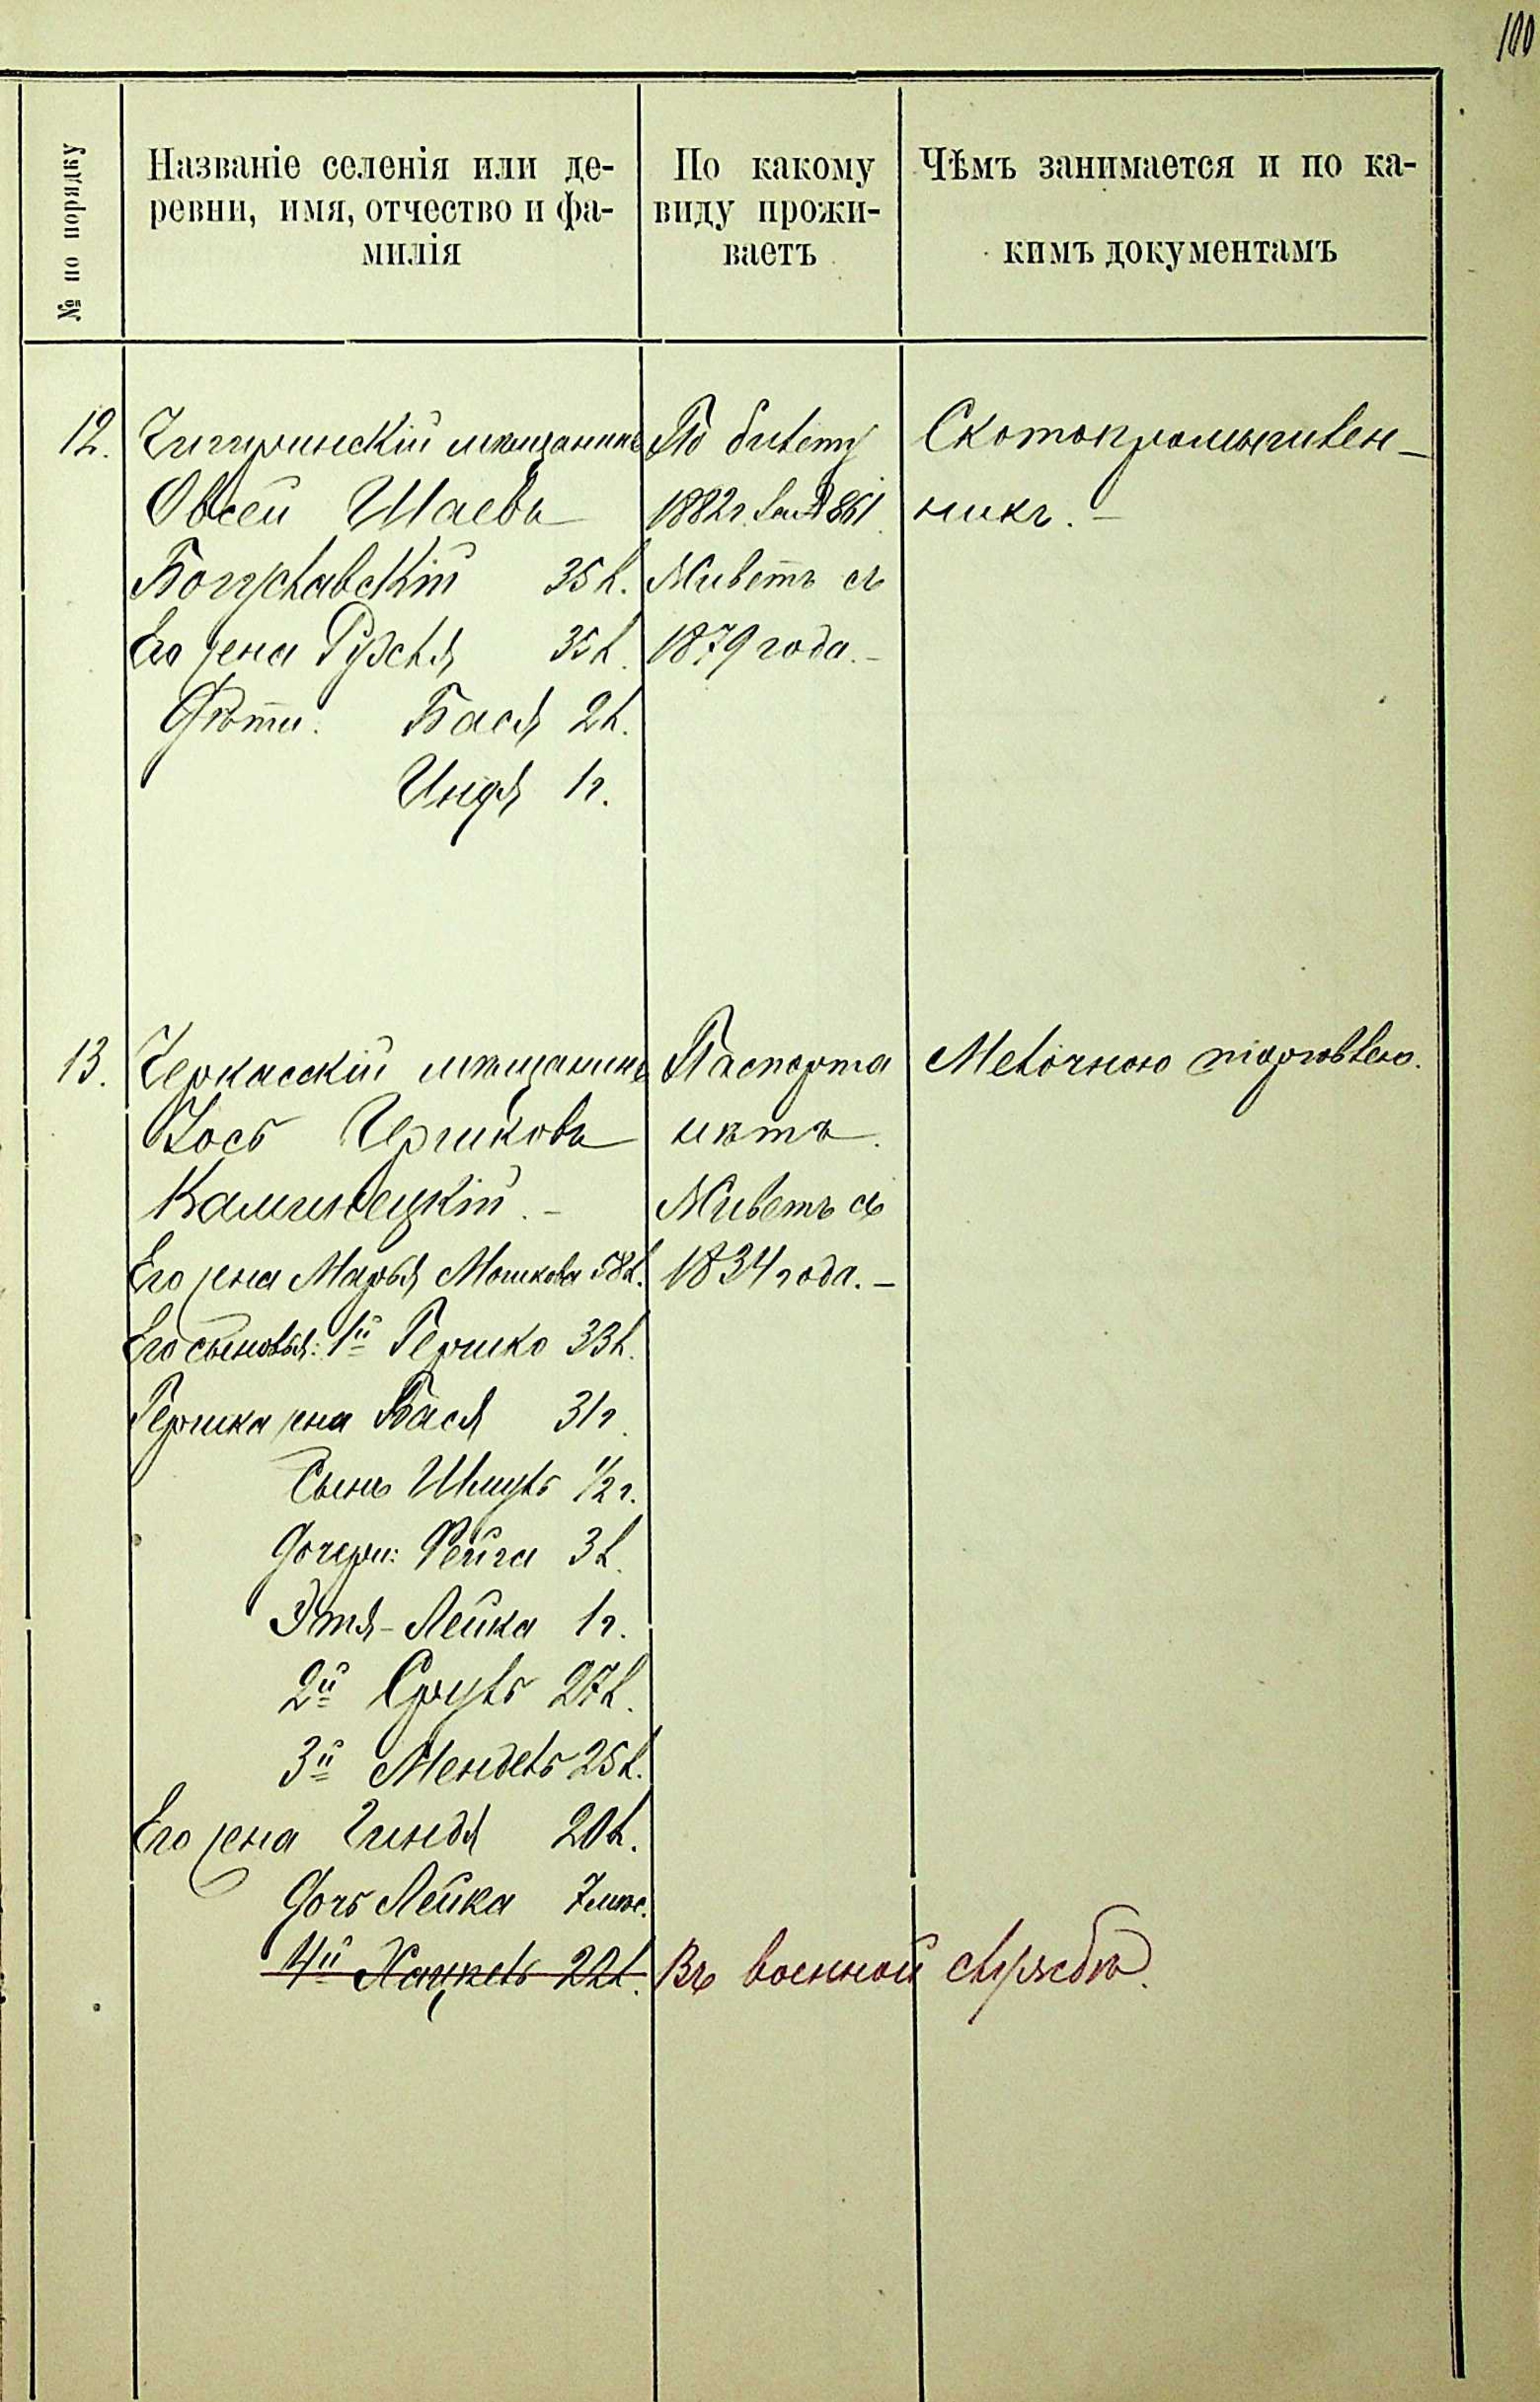 100
№ по порядку
Названіе селенія или де-
ревни, имя, отчество и фа-
милія
По какому
виду прожи-
ваетъ
Чѣмъ занимается и по ка-
кимъ документамъ
12.
Чигиринскій мѣщанинъ
Овсей Шаевъ
Богуславскій 35 л.
Его жена Рузля 35 л.
Дѣти: Бася 2 л.
Индя 1 г.
По билету
1882 г. за № 861
Живетъ съ
1879 года. –
Скотопромышлен-
никъ. –
13.
Черкасскій мѣщанинъ
Іось Ицковъ
Каминецкій. –
Его жена Марья Мошкова 58 л.
Его сыновья: 1й Гершко 33 л.
Гершка жена Бася 31 г.
Сынъ Шмуль 1/2 г.
Дочери: Фейга 3 л.
Этя-Лейка 1 г.
2й Сруль 27 л.
3й Мендель 25 л.
Его жена Гиндя 20 л.
Дочь Лейка 7 мѣс.
4й Хацкель 22 л.
Паспорта
нѣтъ.
Живетъ съ
1834 года. –
Мелочною торговлею.
Въ военной службѣ.